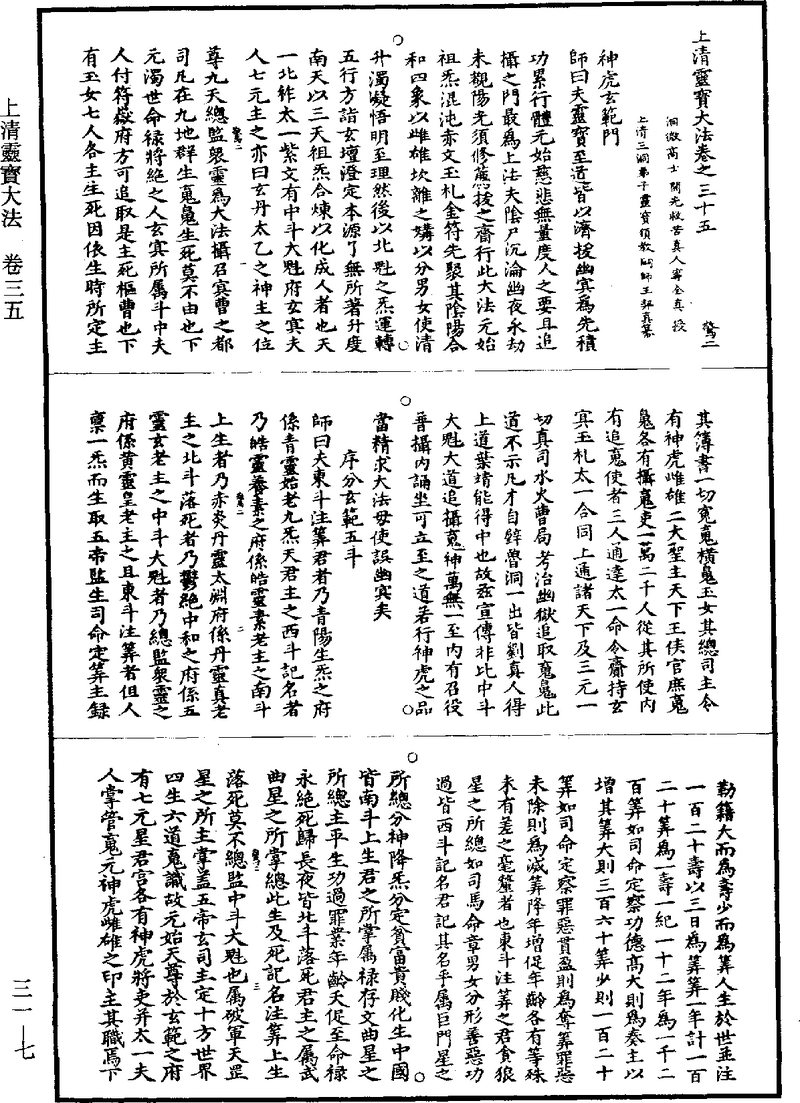 上清靈寶大法卷之三十五
驚二
洞微高士開光救苦真人甯全真授
上清三洞弟子靈寶領教嗣師王契真纂
神虎玄範門
師曰夫靈寶至道皆以濟援幽冥爲先積
功累行體元始慈悲無量度人之要且追
攝之門最爲上法夫陰尸沉淪幽夜永劫
未覩陽光須修薦拔之齋行此大法元始
祖炁混沌赤文玉札金符先聚其陰陽合
和四象以雌雄坎離之媾以分男女使清
升濁凝悟明至理然後以北魁之炁運轉
五行方詣玄壇澄定本源了無所著升度
南天以三天祖炁合煉以化成人者也天
一北柞太一紫文有中斗大魁府玄冥夫
人七元主之亦曰玄丹太乙之神主之位
尊九天總監衆靈爲大法攝召冥曹之都
司凡在九地群生䰟鬼生死莫不由也下
元濁世命禄將絶之人玄冥所屬斗中夫
人付符嶽府方可追取是主死樞曹也下
有玉女七人各主生死因依生時所定主
其簿書一切寃䰟横鬼玉女其總司主令
有神虎雌雄二大聖主天下王侯官庶䰟
鬼各有攝䰟吏一萬二千人從其所使内
有追䰟使者三人通達太一命令齋持玄
冥玉札太一合同上通諸天下及三元一
切真司水火曹局考治幽獄追取䰟鬼此
道不示凡才自鋅魯洞一出皆劉真人得
上道葉靖能得中也故兹宣傳非比中斗
大魁大道追攝䰟神萬無一至内有召役
普攝内誦坐可立至之道若行神虎之品
當精求大法毋使誤幽冥夫
序分玄範五斗
師曰夫東斗注筭君者乃青陽生炁之府
係青靈始老九炁天君主之西斗記名者
乃皓靈養素之府係皓靈素老主之南斗
上生者乃赤炎丹靈太淵府係丹靈真老
主之北斗落死者乃鬱絶中和之府係五
靈玄老主之中斗大魁者乃總監衆靈之
府係黄靈皇老主之且東斗注筭者但人
禀一炁而生取五帝監生司命定筭主録
勒籍大而爲壽少而爲筭人生於世並注
一百二十壽以三日爲筭筭一年計一百
二十筭爲一壽一紀一十二年爲一千二
百筭如司命定察功德高大則爲奏主以
增其筭大則三百六十筭少則一百二十
筭如司命定察罪惡貫盈則爲奪筭罪惡
未除則爲减筭降年增促年齡各有等殊
未有差之毫釐者也東斗注筭之君貪狼
星之所總如司馬命章男女分形善惡功
過皆西斗記名君記其名乎屬巨門星之
所總分神降炁分定貧富貴賤化生中國
皆南斗上生君之所掌屬禄存文曲星之
所總主平生功過罪業年齡夭促至命禄
永絶死歸長夜皆北斗落死君主之屬武
曲星之所掌總此生及死記名注筭上生
落死莫不總監中斗大魁也屬破軍天罡
星之所主掌蓋五帝玄司主定十方世界
四生六道䰟識故元始天尊於玄範之府
有七元星君宫各有神虎將吏并太一夫
人掌管䰟元神虎雌雄之印主其職焉下
上清靈寶大法 卷三五
三一—七